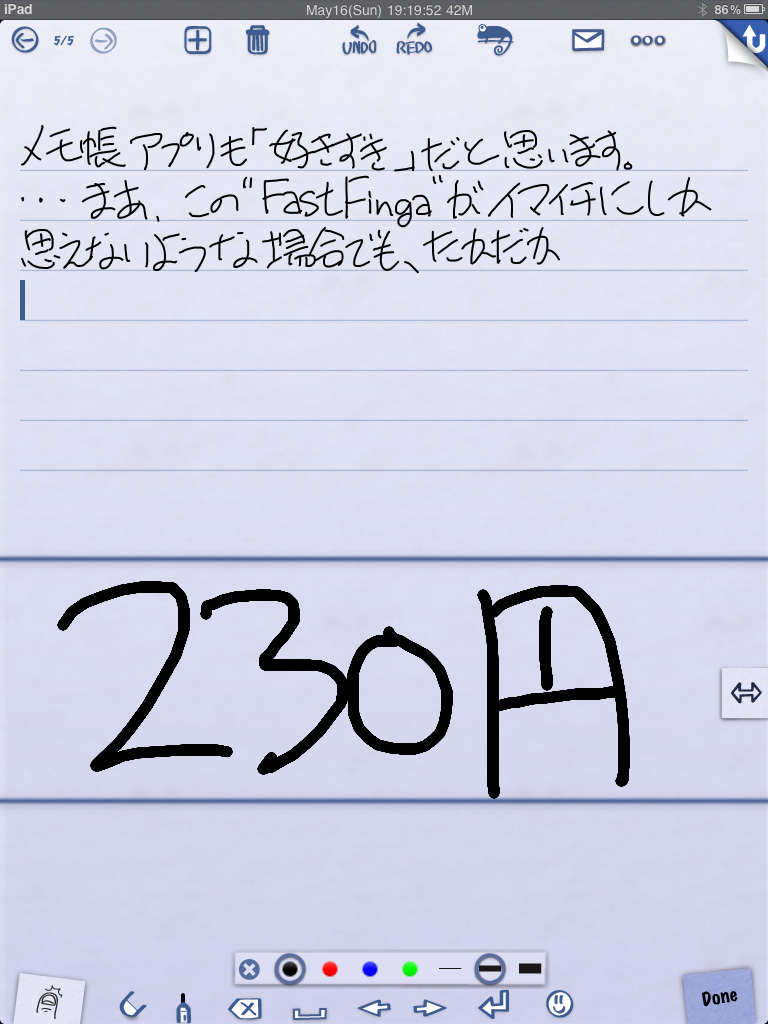 iPad May16(Sun) 19:19:52 42M 86%
5/5 UNDO REDO
メモ帳アプリも「好きずき」だと思います。
・・・まあ、この"FastFinga"がイマイチにしか
思えないような場合でも、たかだか
230円
Done